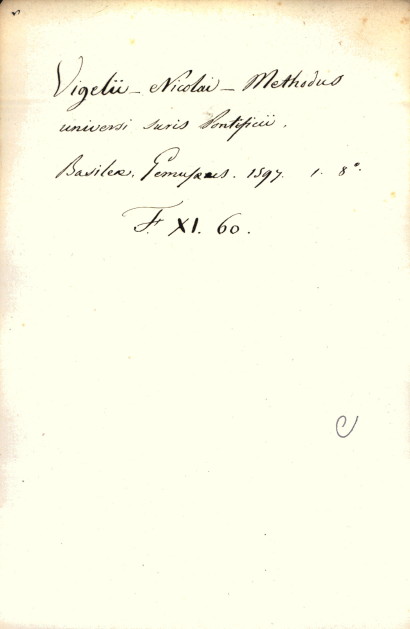 Vigelii - Nicolai - Methodus
universi Iuris Pontificii.
Basileæ. 1597. 1. 8°.
F. XI. 60.
C